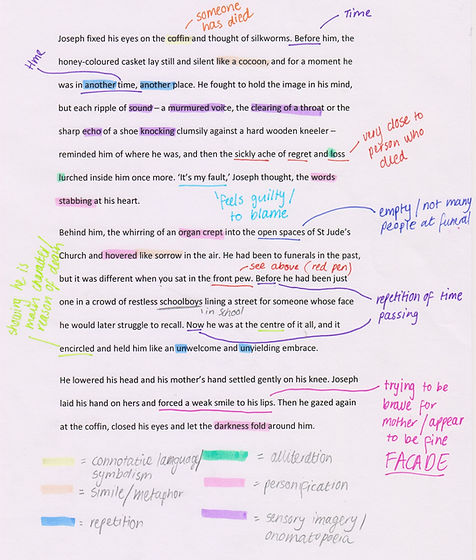 someone has died
Time
Joseph fixed his eyes on the coffin and thought of silkworms. Before him, the
time
honey-coloured casket lay still and silent like a cocoon, and for a moment he
was in another time, another place. He fought to hold the image in his mind,
but each ripple of sound – a murmured voice, the clearing of a throat or the
sharp echo of a shoe knocking clumsily against a hard wooden kneeler –
reminded him of where he was, and then the sickly ache of regret and loss
very close to
person who
died
lurched inside him once more. ‘It’s my fault,’ Joseph thought, the words
stabbing at his heart.
feels guilty/
to blame
empty/not many
people at funeral
Behind him, the whirring of an organ crept into the open spaces of St Jude’s
Church and hovered like sorrow in the air. He had been to funerals in the past,
see above (red pen)
but it was different when you sat in the front pew. Before he had been just
showing he is
main character/
reason of death
one in a crowd of restless schoolboys lining a street for someone whose face
in school
repetition of time
passing
he would later struggle to recall. Now he was at the centre of it all, and it
encircled and held him like an unwelcome and unyielding embrace.
He lowered his head and his mother’s hand settled gently on his knee. Joseph
laid his hand on hers and forced a weak smile to his lips. Then he gazed again
at the coffin, closed his eyes and let the darkness fold around him.
trying to be
brave for
mother/appear
to be fine
FACADE
= connotative language/
symbolism
= simile/metaphor
= repetition
= alliteration
= personification
= sensory imagery/
onomatopoeia